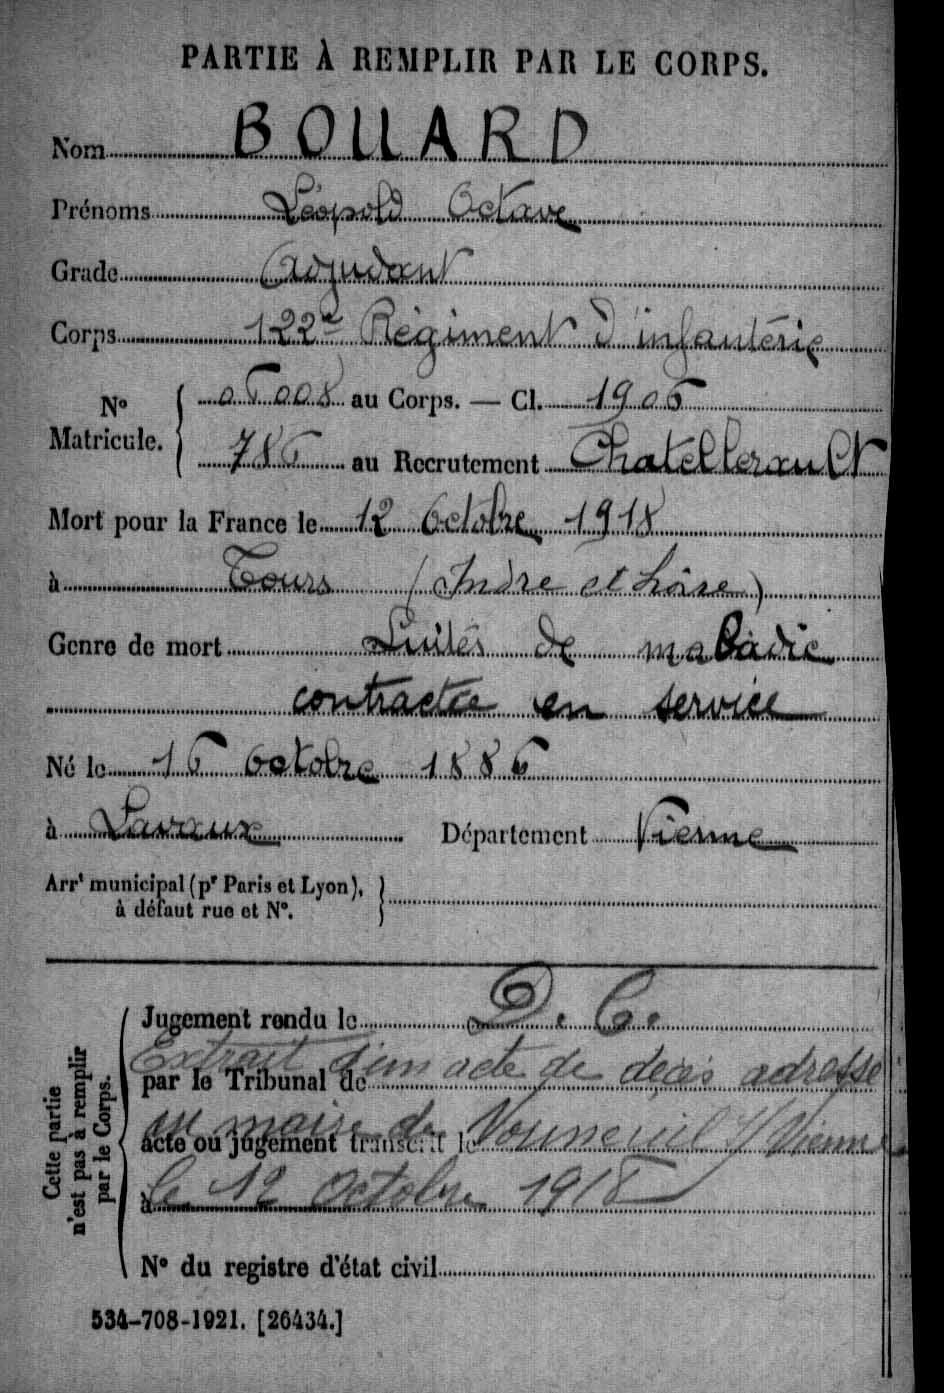 PARTIE À REMPLIR PAR LE CORPS.
Nom BOUARD
Prénoms Léopold Octave
Grade Adjudant
Corps 122e Régiment d'infanterie
No Matricule. 06008 au Corps. — Cl. 1906
786 au Recrutement Chatellerault
Mort pour la France le 12 Octobre 1918
à Tours (Indre et Loire)
Genre de mort Suites de maladie
contractée en service
Né le 16 Octobre 1886
à Lavaux Département Vienne
Arrt municipal (pr Paris et Lyon),
à défaut rue et No.
Cette partie
n'est pas à remplir
par le Corps.
Jugement rendu le D. C.
Extrait d'un acte de décès adressé
par le Tribunal de
au maire de Vouneuil s/ Vienne
acte ou jugement transcrit le
à le 12 Octobre 1918
No du registre d'état civil
534-708-1921. [26434.]